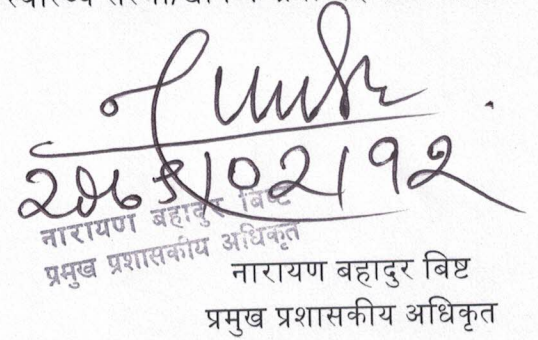 २०७९/०२/१२
नारायण बहादुर बिष्ट
प्रमुख प्रशासकीय अधिकृत
नारायण बहादुर बिष्ट
प्रमुख प्रशासकीय अधिकृत